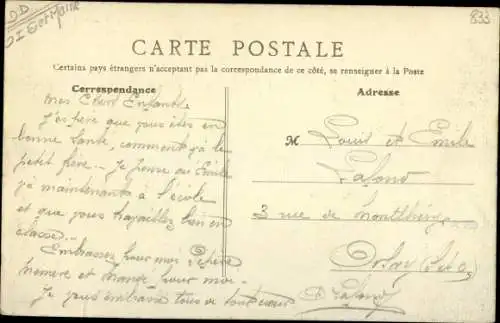 DD
833
CARTE POSTALE
Certains pays étrangers n'acceptant pas la correspondance de ce côté, se renseigner à la Poste
Correspondance
Adresse
Mes Chers Enfants
J'espère que vous êtes en
bonne Santé, comment va le
petit frère. - Je pense que Emile
va maintenant à l'école
et que vous travaillez bien en
classe. -
Embrassez pour moi
mémère et pour moi -
Je vous embrasse tous de tout cœur
M Louis et Emile
Lafond
3 rue de Montlhéry
Orsay (S et O)
Lafond